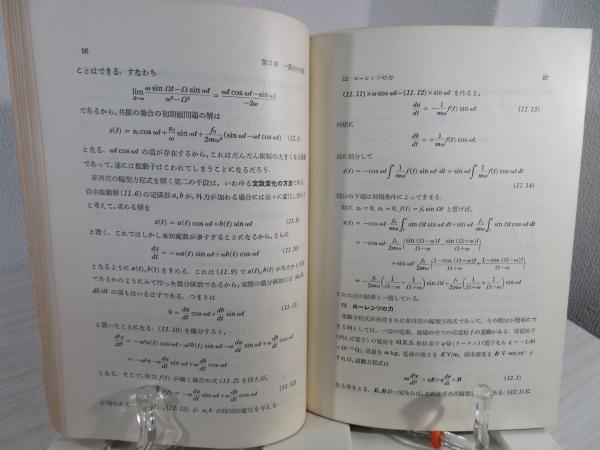 56
第2章
ことはできる．すなわち
lim ω sin Ωt−Ω sin ωt / ω²−Ω² = ωt cos ωt−sin ωt / −2ω
であるから，共振の場合の初期値問題の解は
x(t) = x₀ cos ωt + v₀/ω sin ωt + f₀/2mω² (sin ωt−ωt cos ωt)
となる．ωt cos ωt の項が存在するから，これはだんだん振幅の大きくなる
であって，遂には振動子はこわれてしまうことになるだろう．
非斉次の線型方程式を解く第二の手段は，いわゆる定数変化の方法である．
自由振動解 (11.6) の定係数 a, b が，外力が加わる場合には徐々に変化し
と考えて，求める解を
x(t) = a(t) cos ωt+b(t) sin ωt (11.9)
と置く．これではしかし未知函数が多すぎることになるから，さらに
dx/dt = −ωa(t) sin ωt+ωb(t) cos ωt (11.10)
となるように a(t), b(t) をきめる．これは (11.9) で a(t), b(t) が
であるかのようにみて作った微分係数であるから，実際の微分係数には
db/dt の項もはいるはずである．つまりは
0 = da/dt cos ωt + db/dt sin ωt (11.11)
と置いたことになる．(11.10) を微分すると，
d²x/dt² = −ω²a(t) cos ωt−ω²b(t) sin ωt−ω da/dt sin ωt+ω db/dt cos ωt
= −ω²x−ω da/dt sin ωt+ω db/dt cos ωt
となる．そこで，外力 f(t) が働く場合の式 (11.2) を使えば，
−ω da/dt sin ωt+ω db/dt cos ωt (11.12)
が得られる．(11.12) が a, b の時間的変化を与える．
12 ローレンツの力
57
(11.11)×ω cos ωt−(11.12)×sin ωt を作ると，
da/dt = − 1/mω f(t) sin ωt (11.13)
同様に
db/dt = + 1/mω f(t) cos ωt.
故に積分して
x(t) = −cos ωt∫ 1/mω f(t) sin ωt·dt + sin ωt∫ 1/mω f(t) cos ωt dt
(11.14)
積分の下端は初期条件によってきまる．
特に x₀ = 0, v₀ = 0, f(t) = f₀ sin Ωt と置けば，
x(t) = −cos ωt· f₀/mω ∫ sin Ωt sin ωt dt+sin ωt· f₀/mω ∫ sin Ωt cos ωt dt
= −cos ωt· f₀/2mω { sin (Ω−ω)t / Ω−ω − sin (Ω+ω)t / Ω+ω }
+sin ωt· f₀/2mω { 1−cos (Ω−ω)t / Ω−ω + 1−cos (Ω+ω)t / Ω+ω }
= − f₀/2mω ( 1/Ω−ω − 1/Ω+ω ) sin Ωt + f₀/2mω ( 1/Ω−ω + 1/Ω+ω ) sin ωt.
これは前の結果と一致している．
12 ローレンツの力
運動方程式が斉次または非斉次の線型方程式であって，その積分が簡単にで
きる例としては，一定の電場，磁場の中での荷電粒子の運動がある．荷電粒子
(例えば電子) の電荷を M.K.S. 単位系で q Q (クーロン) (電子なら
Q)，質量を m kg，電場の強さを E V/m，磁束密度を
すれば，運動方程式は
(12.1)
なる形をとる．E, B が一定ならば，これは非斉次線型 ある．(12.1) に